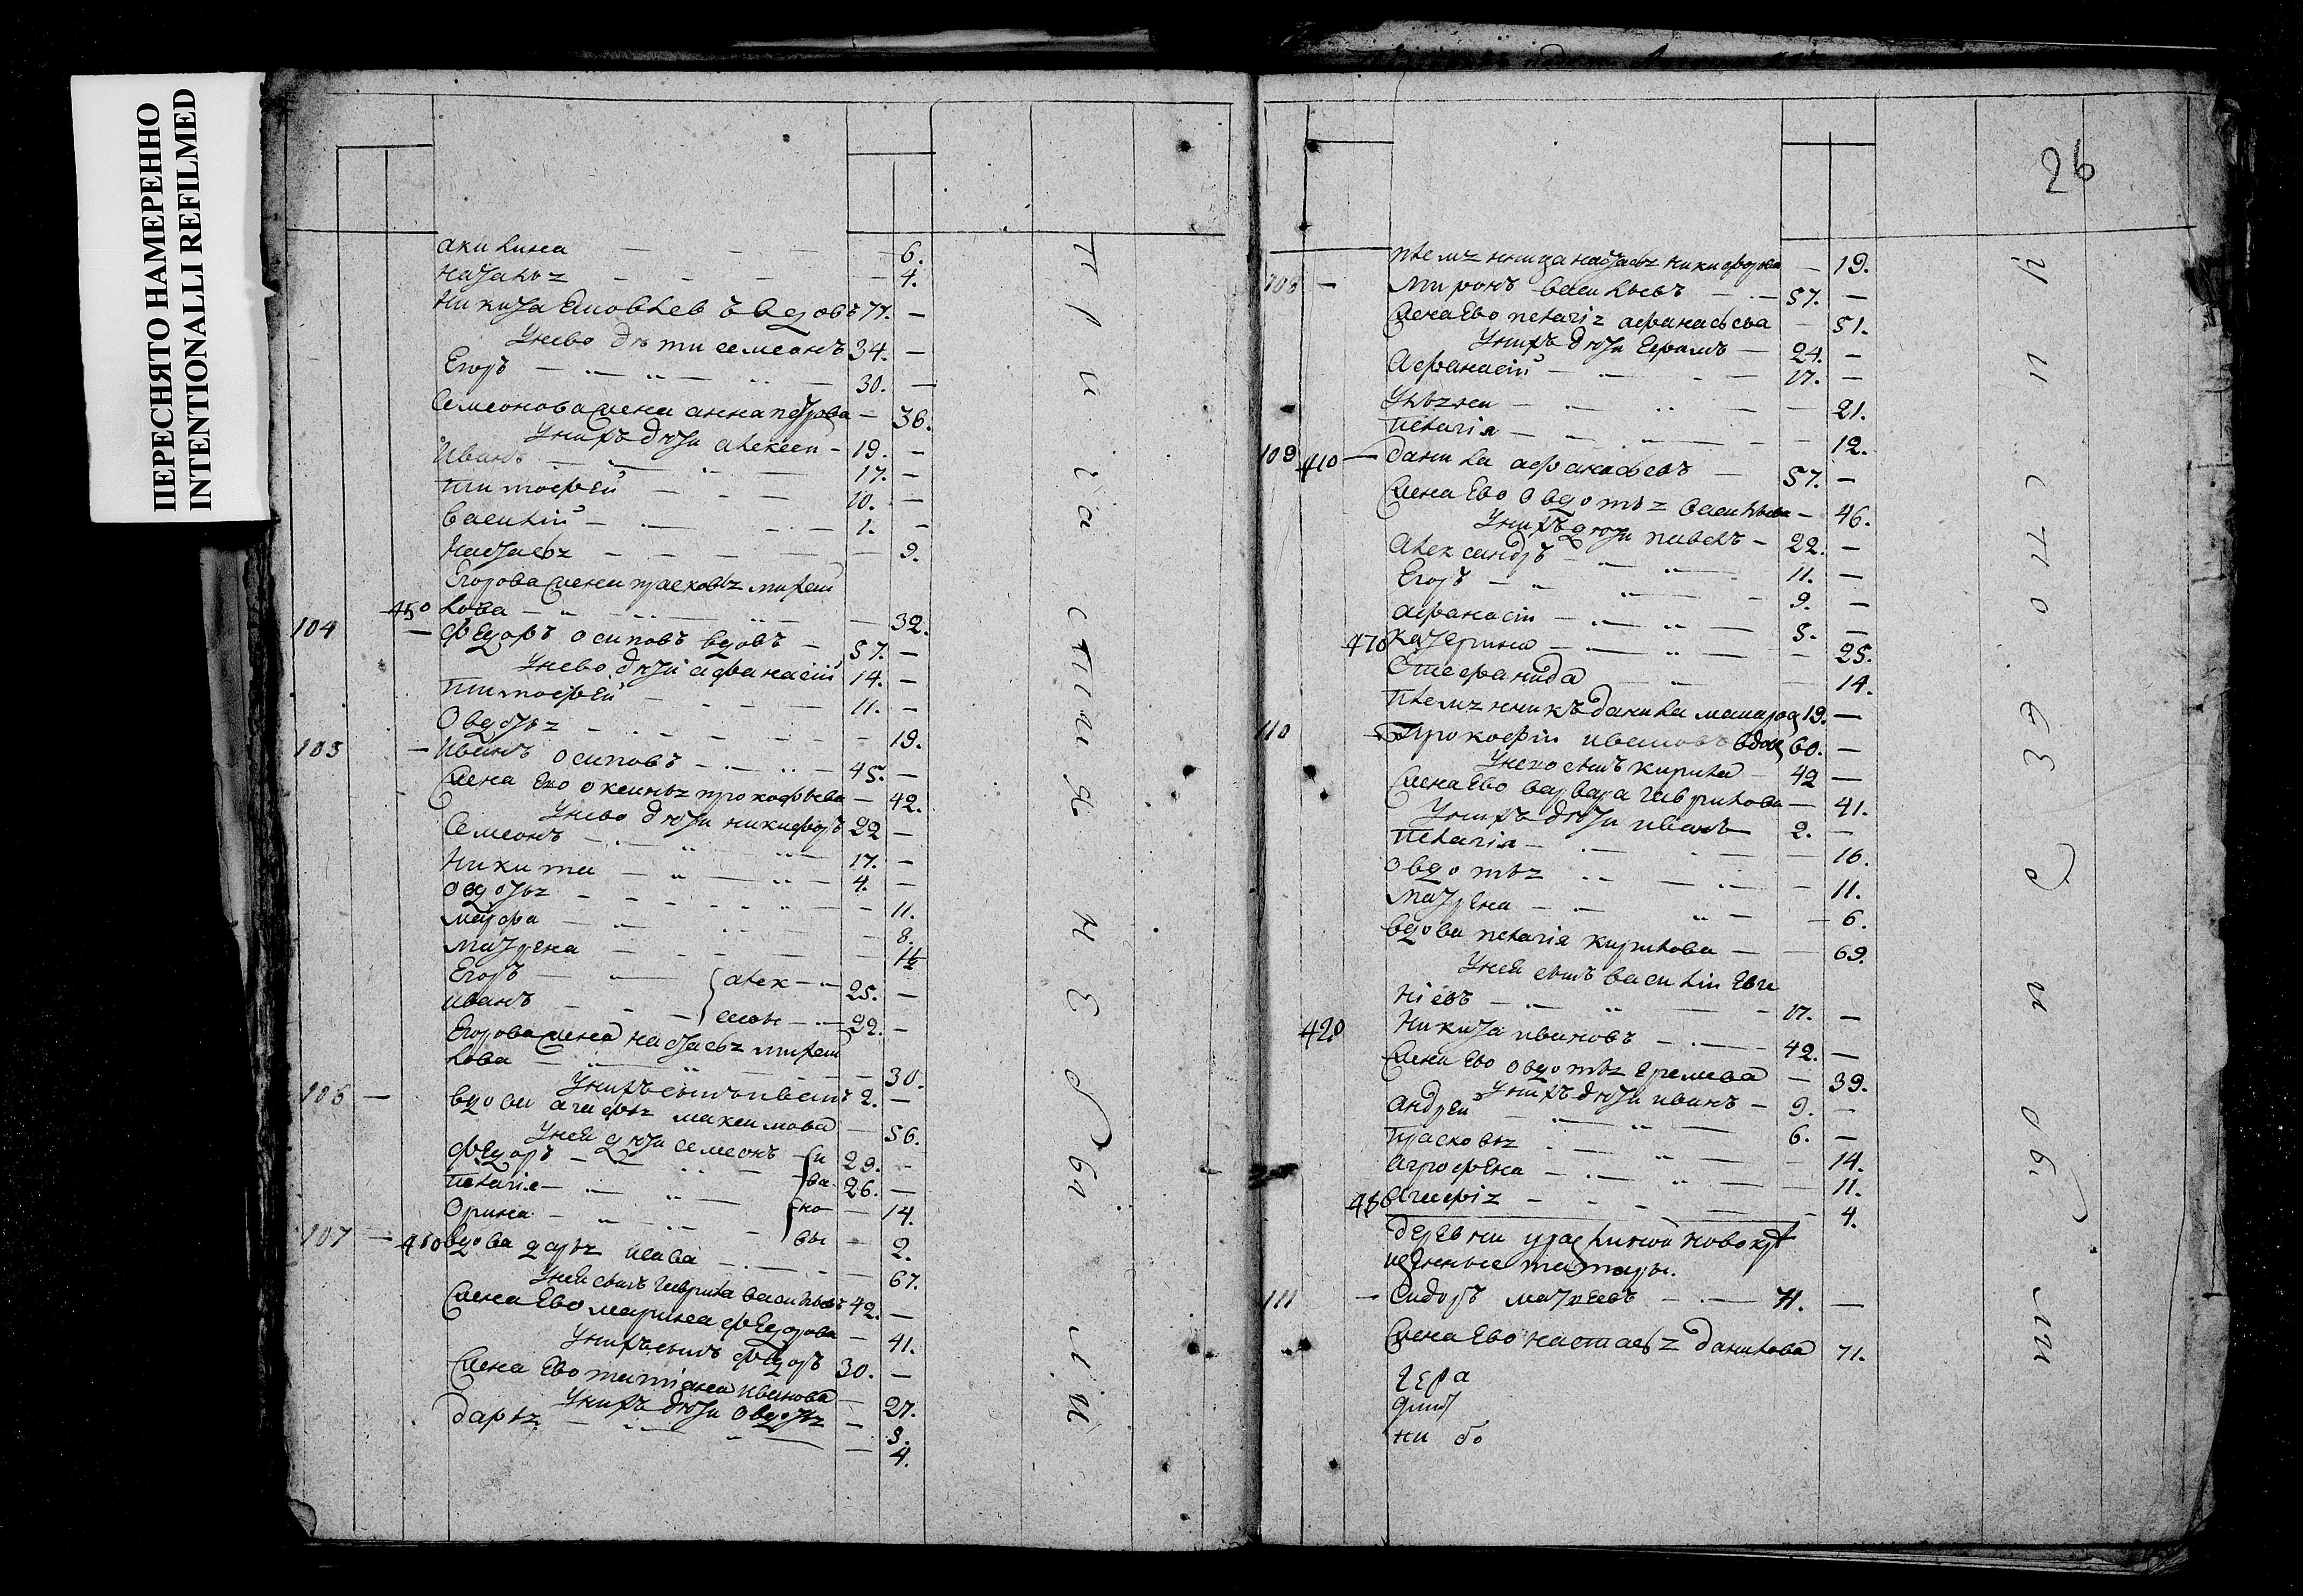 ПЕРЕСНЯТО НАМЕРЕННО
INTENTIONALLI REFILMED
акилина — 6.
наталья — 4.
Никита вдовъ 77. —
у нево дети семеонъ 34. —
Егоръ — 30. —
Семеонова жена анна петрова — 36.
у нихъ дѣти алексеи — 19. —
Иванъ — 17. —
тимофей — 10. —
василій — 1. —
настасья — 9.
Егорова жена прасковья михаи
450 лова — 32.
104 — федоръ осиповъ вдовъ — 57. —
у нево дѣти афанасій 14. —
тимофей — 11. —
овдотья — 19.
105 — Иванъ осиповъ — 45. —
жена ево оксинья прокофьева — 42.
у нево дѣти никифоръ 22 —
Семеонъ — 17. —
Никита — 4. —
овдотья — 11.
марфа — 8.
матрена —
Егоръ — алек — 25. —
иванъ — сеевы — 22. —
Егорова жена настасья михаи
лова — 30.
у нихъ сынъ иванъ 2. —
106 — вдова агафья максимова — 56.
у неи дѣти семеонъ — и 29. —
федоръ — ва 26. —
пелагія — но — 14.
Орина — вы — 2.
107 — 460 вдова дарья — 67.
у неи сынъ гаврила васильевъ 42. —
жена Ево марина федорова — 41.
у нихъ сынъ федоръ 30. —
жена Ево татіана иванова — 27.
у нихъ дѣти овдотья —
дарья — 4.
при часни не были
26
племянница настасья никифорова — 19.
108 — миронъ васильевъ — 57. —
жена Ево пелагія афанасьева — 51.
у нихъ дѣти Ефимъ — 24. —
Афанасій — 17. —
ульяна — 21.
пелагія — 12.
109 410 — данила афанасьевъ — 57. —
жена Ево овдотья васильева — 46.
у нихъ дѣти павелъ — 22. —
александръ — 11. —
Егоръ — 9. —
афанасіи —
470 катерина — 25.
Стефанида — 14.
племянникъ данила 19. —
110 — Прокофіи ивановъ вдовъ 60. —
у нево сынъ кирила — 42 —
жена Ево варвара гаврилова — 41.
у нихъ дѣти иванъ 2. —
пелагія — 16.
овдотья — 11.
матрена — 6.
вдова пелагія кирилова — 69.
у неи сынъ василіи Евге
ніевъ — 17. —
420 Никита ивановъ — 42. —
жена Ево овдотья еремеева — 39.
у нихъ дѣти иванъ — 9. —
андреи — 6. —
прасковья — 14.
агрофена — 11.
480 агафія — 4.
деревни новокре
щенные татары.
111 — Сидоръ матвеевъ — 71. —
жена Ево настасья данилова 71.